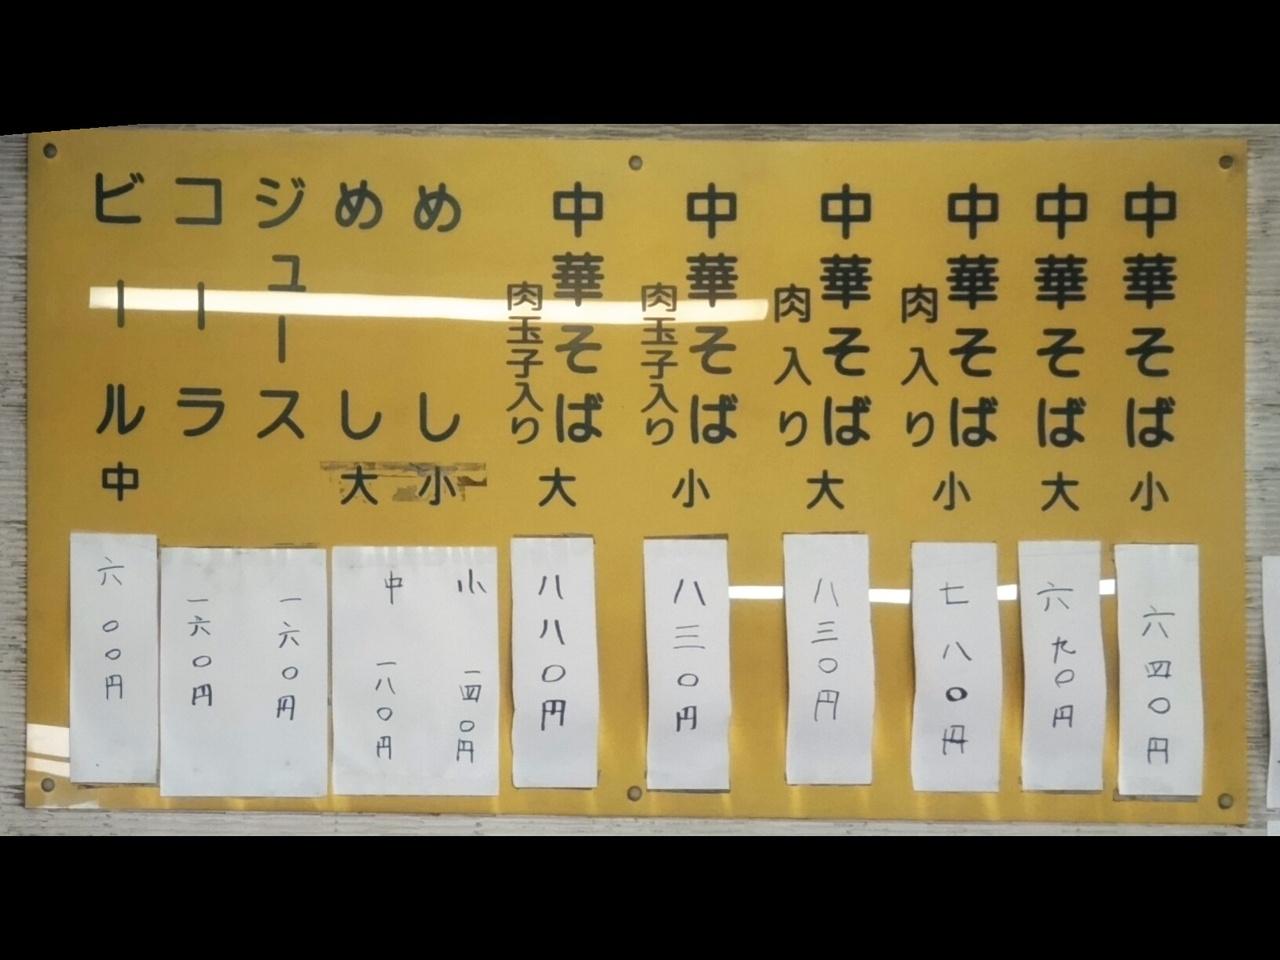 中華そば 小 六四〇円
中華そば 大 六九〇円
中華そば 肉入り 小 七八〇円
中華そば 肉入り 大 八三〇円
中華そば 肉玉子入り 小 八三〇円
中華そば 肉玉子入り 大 八八〇円
めし 小 小 一四〇円
めし 大 中 一八〇円
ジュース 一六〇円
コーラ 一六〇円
ビール 中 六〇〇円